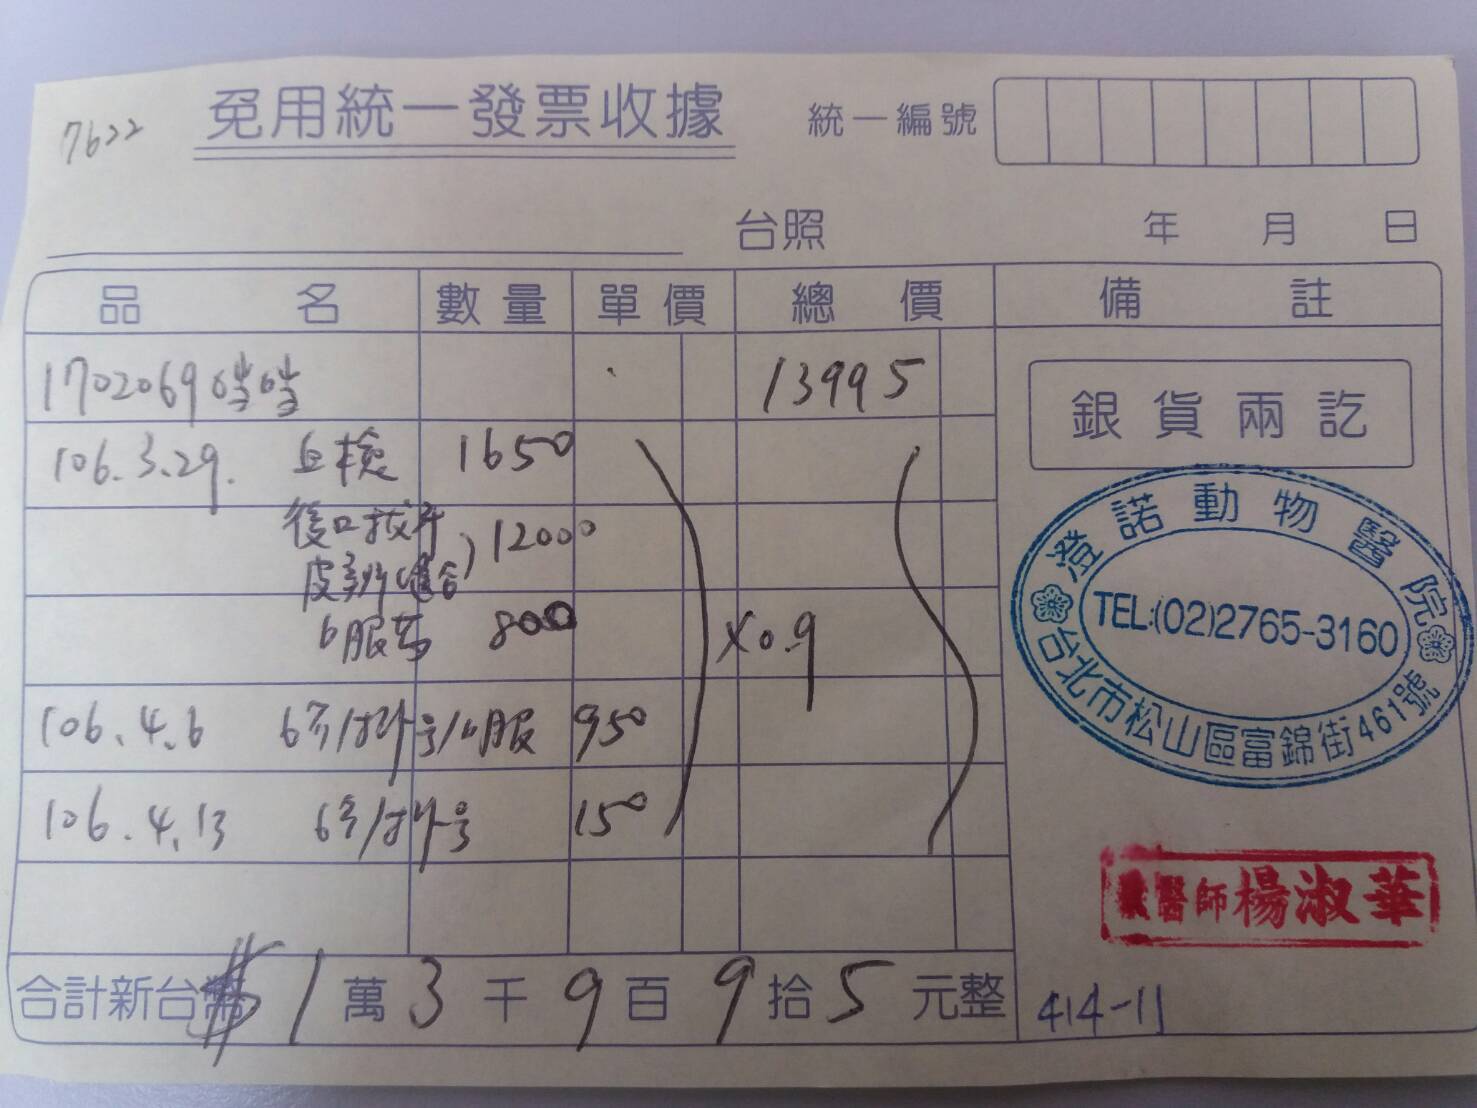 7622
免用統一發票收據
統一編號
台照
年 月 日
品名 數量 單價 總價 備註
1702069 噹噹 13995
銀貨兩訖
106.3.29. 血檢 1650
後口拔牙 12000
800
×0.9
106.4.6 950
106.4.13 150
澄諾動物醫院
TEL:(02)2765-3160
台北市松山區富錦街461號
獸醫師楊淑華
合計新台幣 $1萬3千9百9拾5元整
414-11